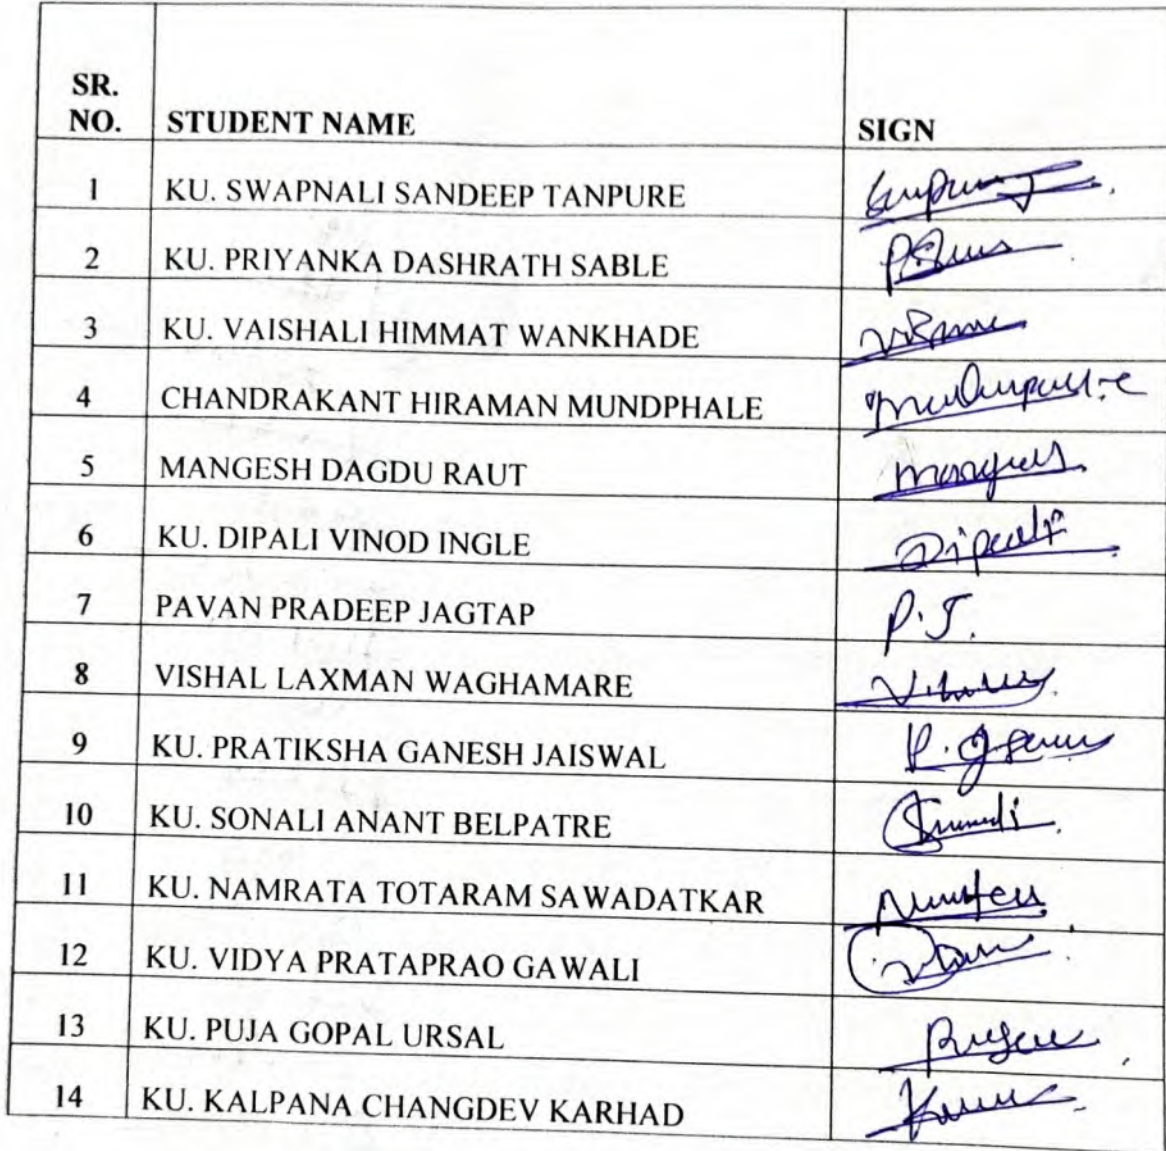 SR.
NO. STUDENT NAME SIGN
1 KU. SWAPNALI SANDEEP TANPURE
2 KU. PRIYANKA DASHRATH SABLE
3 KU. VAISHALI HIMMAT WANKHADE
4 CHANDRAKANT HIRAMAN MUNDPHALE
5 MANGESH DAGDU RAUT
6 KU. DIPALI VINOD INGLE Dipali
7 PAVAN PRADEEP JAGTAP P.J.
8 VISHAL LAXMAN WAGHAMARE
9 KU. PRATIKSHA GANESH JAISWAL
10 KU. SONALI ANANT BELPATRE
11 KU. NAMRATA TOTARAM SAWADATKAR
12 KU. VIDYA PRATAPRAO GAWALI
13 KU. PUJA GOPAL URSAL
14 KU. KALPANA CHANGDEV KARHAD